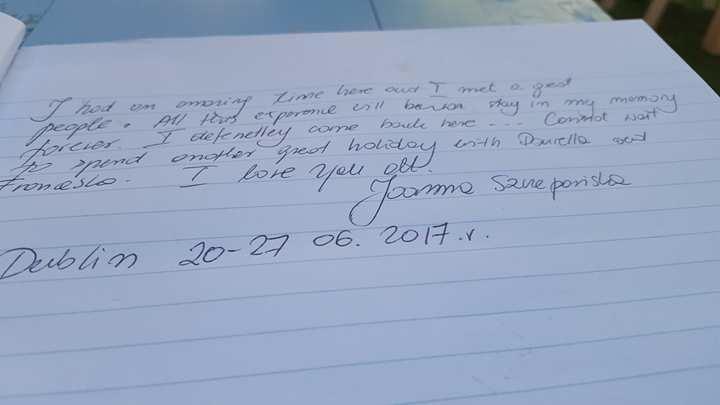 I had an amazing time here and I met a great
people. All this experience will stay in my memory
forever I defenetley come back here ... Cannot wait
to spend another great holiday with Daniella and
Francesko. I love you all.
Joanna
Dublin 20-27 06. 2017.r.